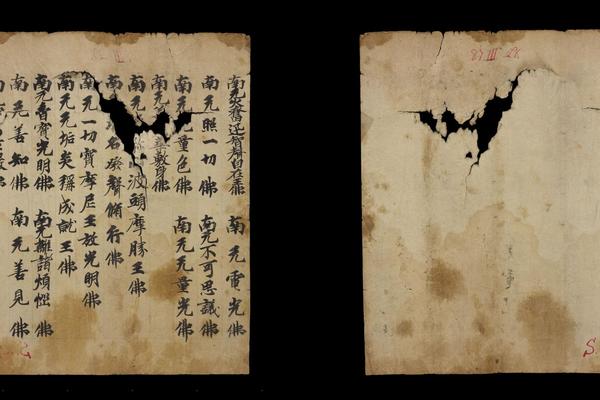 南无炎奮迅自在王佛 南无電光佛
南无照一切佛 南无不可思議佛
南无无量色佛 南无无量光佛
南 數身佛
南无 波頭摩勝王佛
南 名發聲脩行佛
南无一切寶摩尼王放光明佛
南无无垢炎稱成就王佛
南无香寶光明佛 南无離諸煩惱佛
南无善知佛 南无善見佛